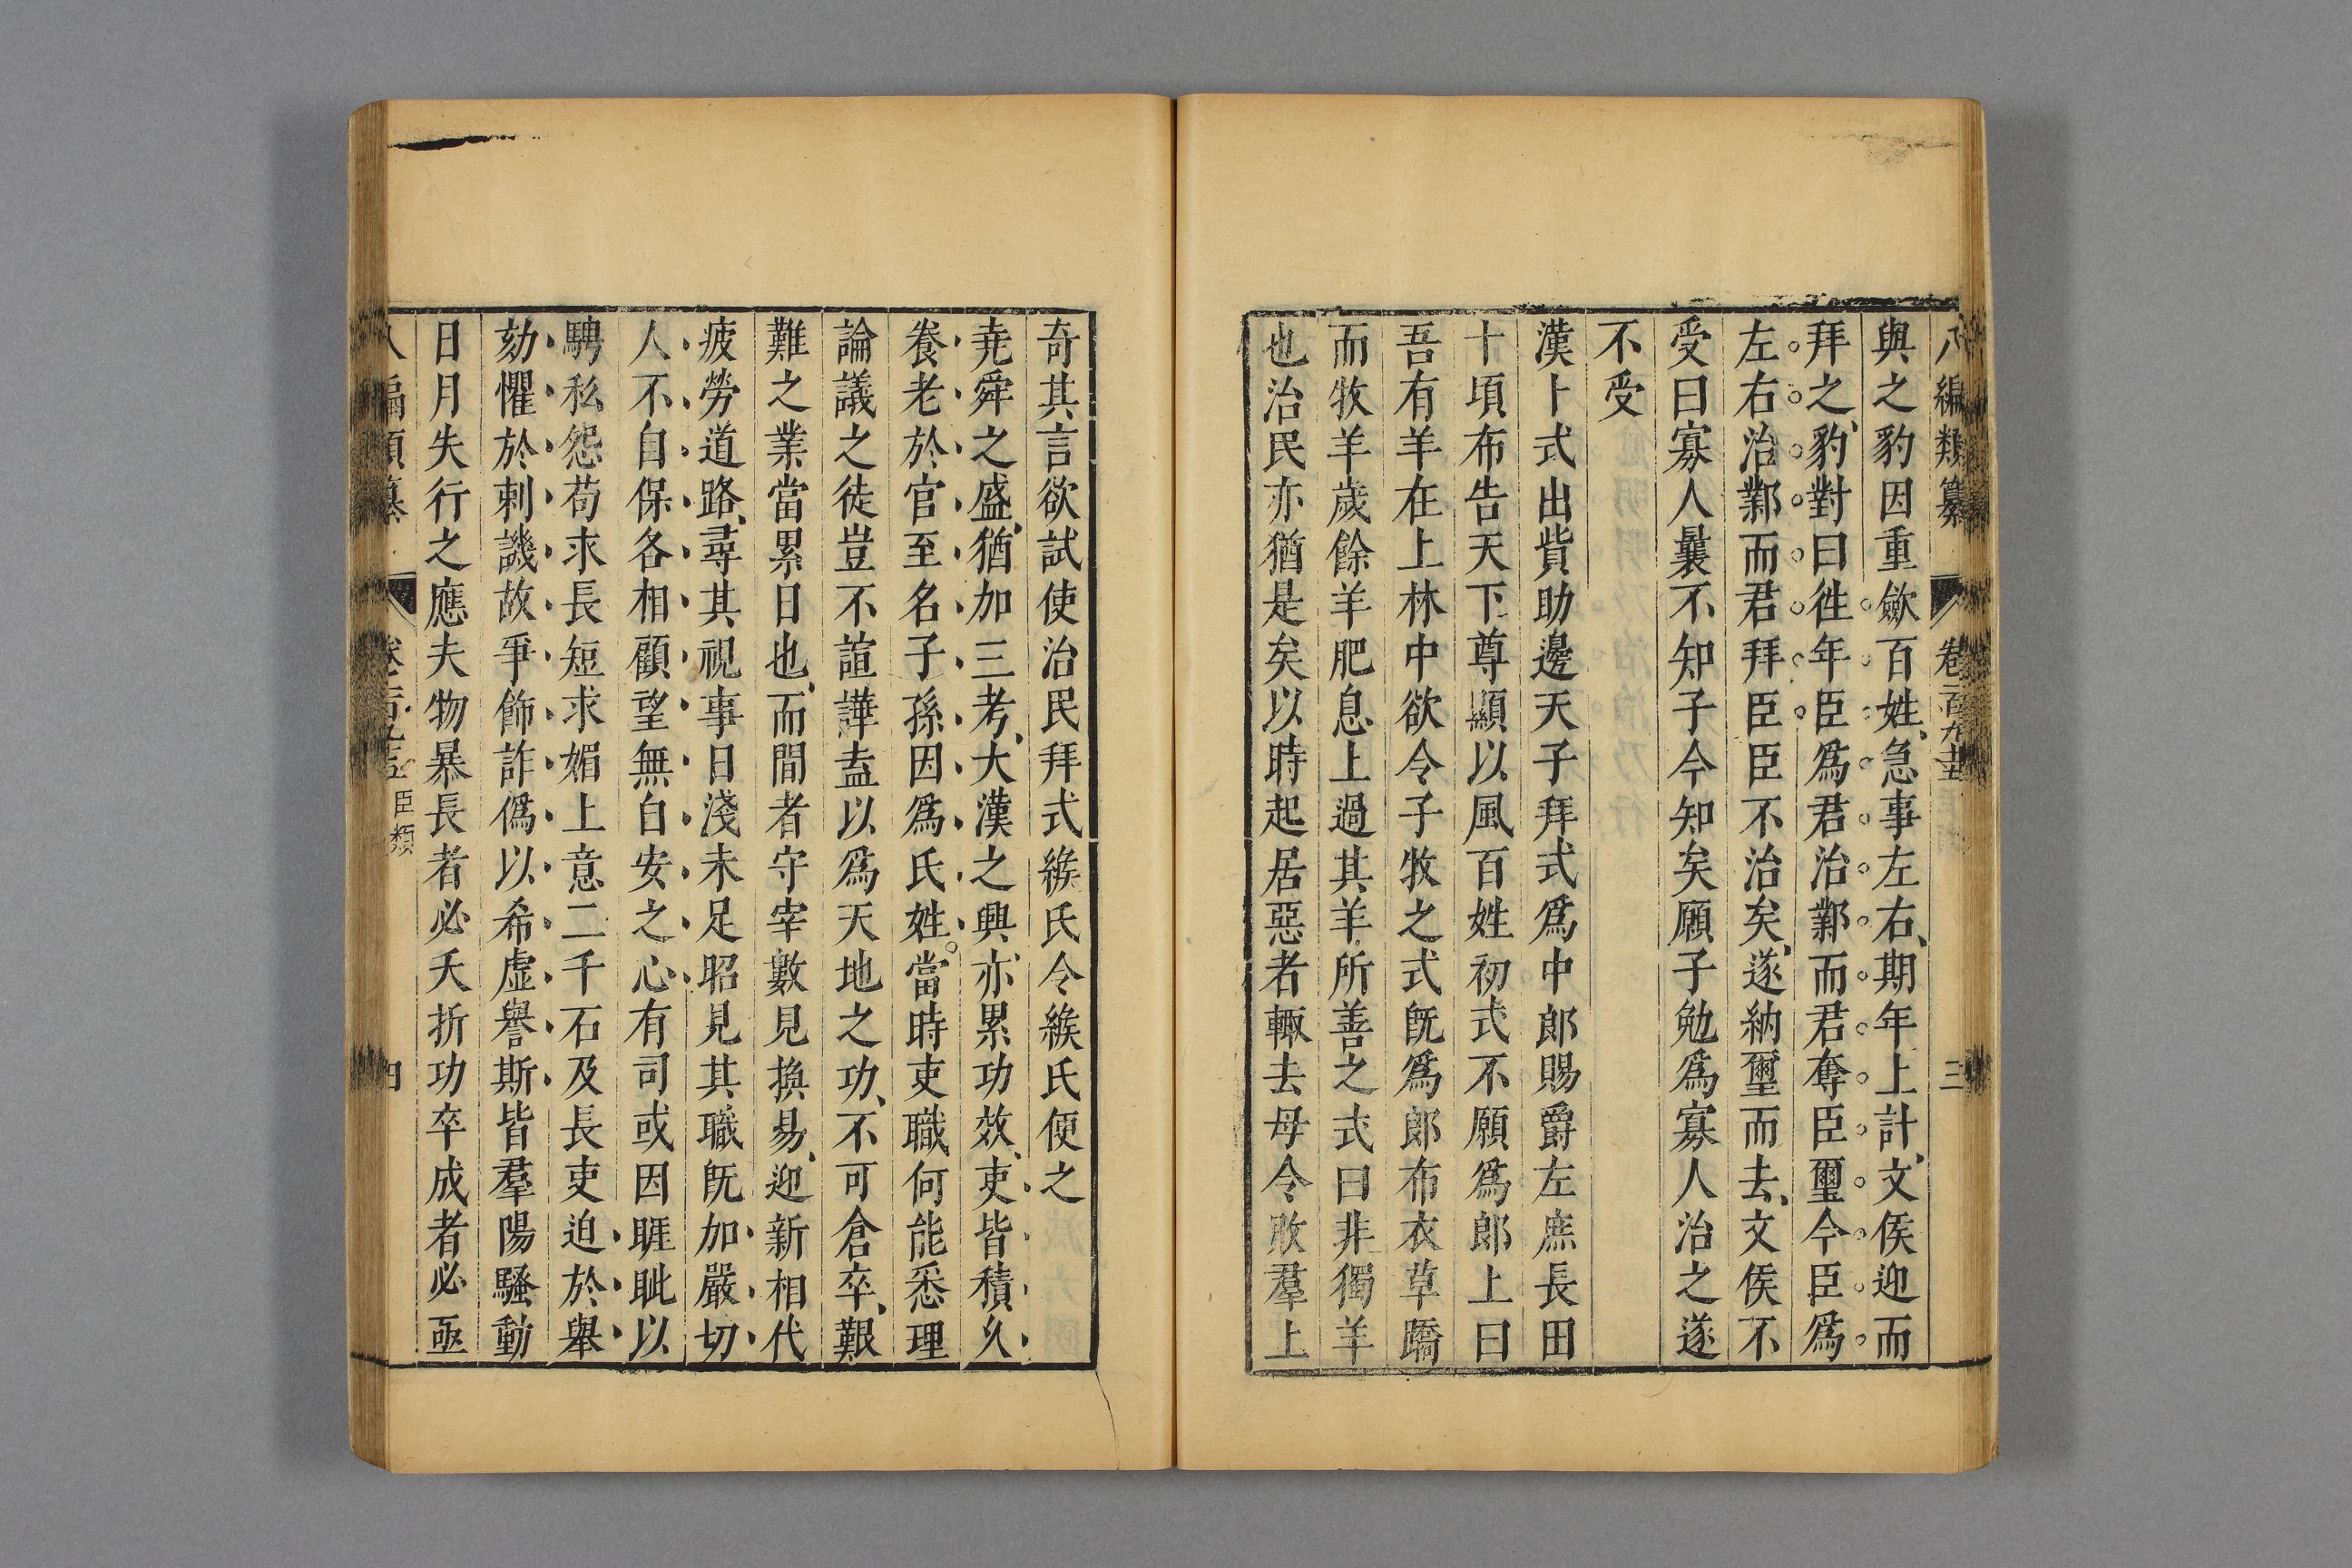 八編類纂 卷二百九十五 三
與之豹因重斂百姓急事左右期年上計文侯迎而
拜之豹對曰徃年臣爲君治鄴而君奪臣璽今臣爲
左右治鄴而君拜臣臣不治矣遂納璽而去文侯不
受曰寡人曩不知子今知矣願子勉爲寡人治之遂
不受
漢卜式出貲助邊天子拜式爲中郎賜爵左庶長田
十頃布告天下尊顯以風百姓初式不願爲郎上曰
吾有羊在上林中欲令子牧之式旣爲郎布衣草蹻
而牧羊歲餘羊肥息上過其羊所善之式曰非獨羊
也治民亦猶是矣以時起居惡者輙去毋令敗羣上
奇其言欲試使治民拜式緱氏令緱氏便之
堯舜之盛猶加三考大漢之興亦累功效吏皆積久
養老於官至名子孫因爲氏姓當時吏職何能悉理
論議之徒豈不諠譁盍以爲天地之功不可倉卒艱
難之業當累日也而間者守宰數見換易迎新相代
疲勞道路尋其視事日淺未足昭見其職旣加嚴切
人不自保各相顧望無自安之心有司或因睚眦以
騁私怨苟求長短求媚上意二千石及長吏迫於舉
劾懼於刺譏故爭飾詐僞以希虛譽斯皆羣陽騷動
日月失行之應夫物暴長者必夭折功卒成者必亟
八編類纂 卷二百九十五 臣類 四